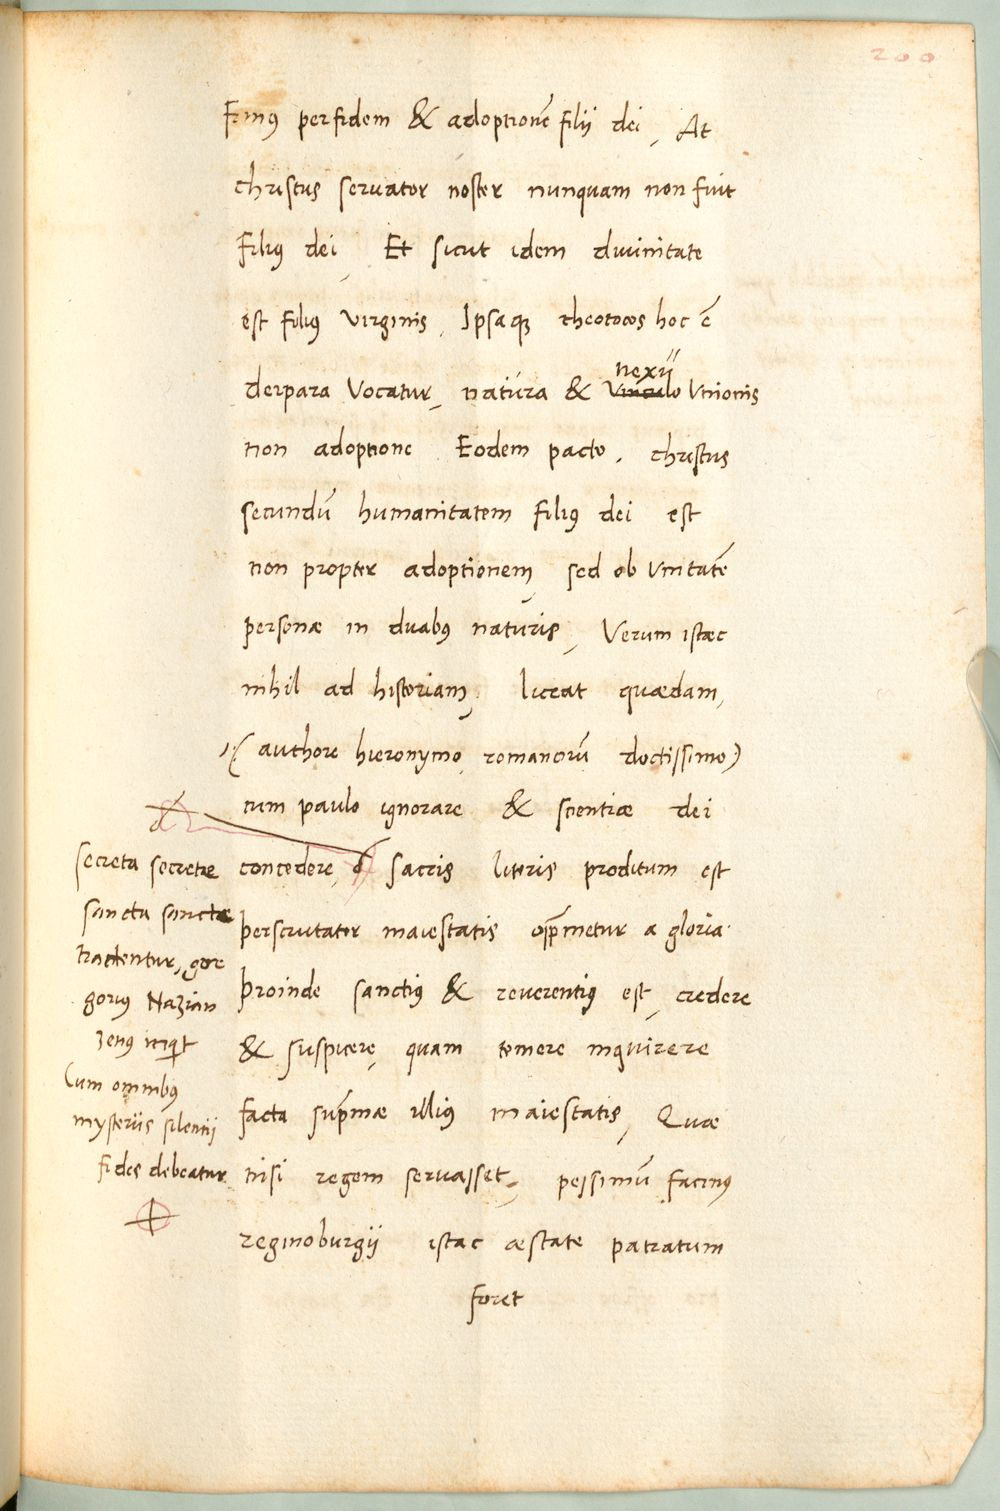 200
fimus per fidem & adoptionē filii dei, At
christus servator noster nunquam non fuit
filius dei, Et sicut idem divinitate
est filius virginis, Ipsaqꝫ theotocos hoc ē
deipara vocatur, natura & vinculo unionis
nexu
non adoptione Eodem pacto, christus
secundū humanitatem filius dei est
non propter adoptionem, sed ob unitatē
personæ in duabus naturis, Verum istæc
nihil ad historiam, liceat quædam,
(authore hieronymo, romanorū doctissimo)
cum paulo ignorare & scientiæ dei
concedere, sacris literis proditum est
perscrutator maiestatis opprimetur a gloria.
proinde sanctius & reverentius est, credere
& suspicere, quam temere inquirere
facta supremæ illius maiestatis, Quæ
nisi regem servasset, pessimū facinus
reginoburgii istac æstate patratum
foret
secreta secrete
sancta sancte
tractentur, gre
gorius Nazian
zenus inquit
Cum omnibus
mysteriis silentii
fides debeatur